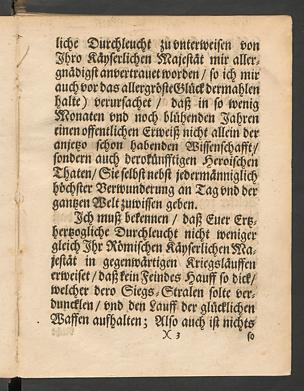 liche Durchleucht zu vnterweisen von
Ihro Käyserlichen Majestät mir aller-
gnädigst anvertrauet worden / so ich mir
auch vor das allergröste Glück dermahlen
halte) verursachet / daß in so wenig
Monaten vnd noch blühenden Jahren
einen offentlichen Erweiß nicht allein der
anjetzo schon habenden Wissenschafft /
sondern auch dero künfftigen Heroischen
Thaten / Sie selbst nebst jedermänniglich
höchster Verwunderung an Tag vnd der
gantzen Welt zuwissen geben.
Ich muß bekennen / daß Euer Ertz-
hertzogliche Durchleucht nicht weniger
gleich Ihr Römischen Käyserlichen Ma-
jestät in gegenwärtigen Kriegsläuffen
erweiset / daß kein Feindes Hauff so dick /
welcher dero Siegs-Stralen solte ver-
duncklen / vnd den Lauff der glücklichen
Waffen aufhalten; Also auch ist nichts
X 3 so